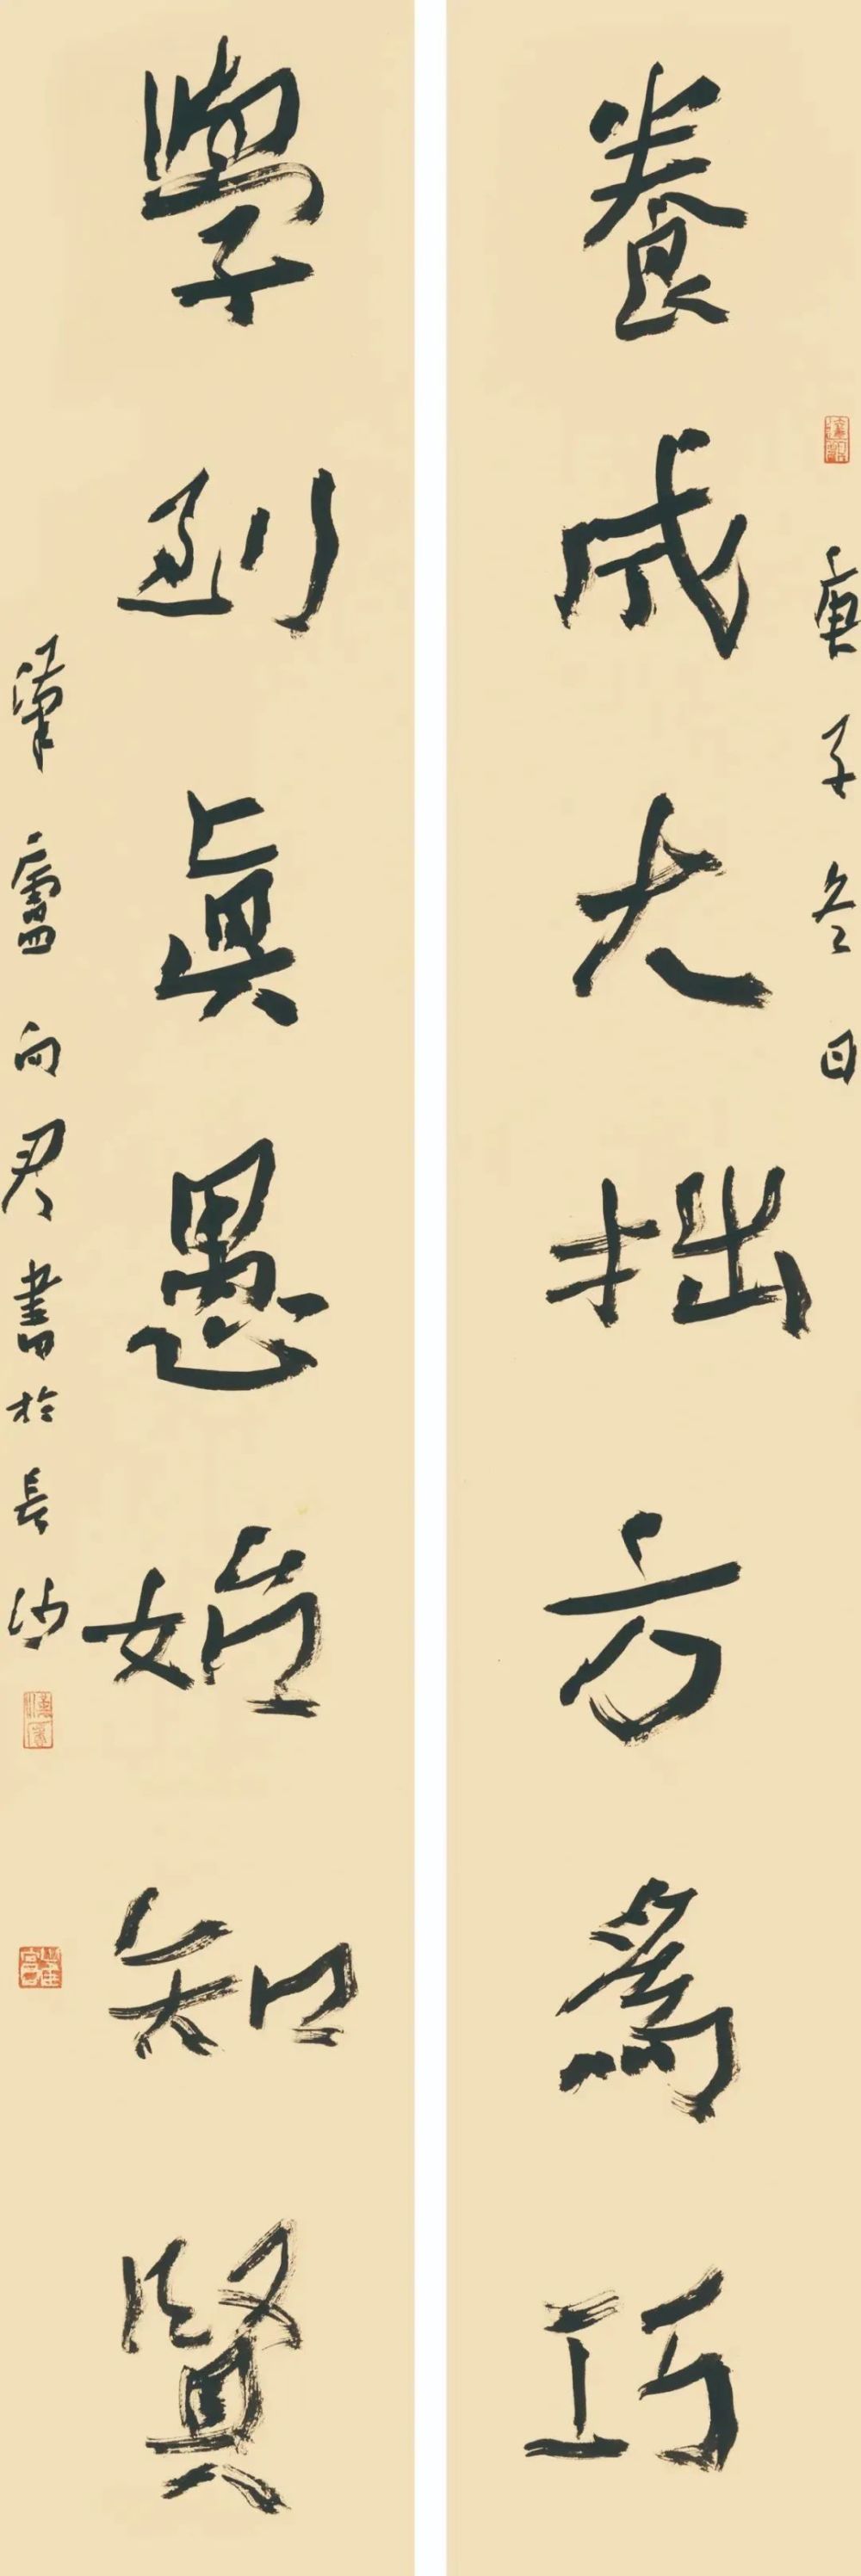 庚子冬日
養成大拙方爲巧
學到眞愚始知賢
廬向君書於長沙